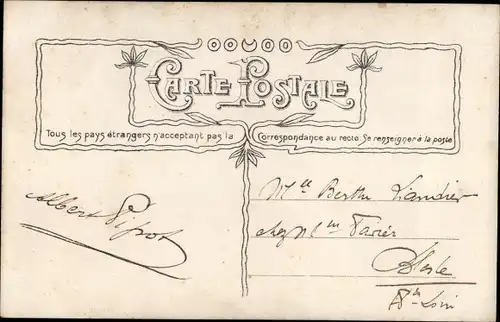 CARTE POSTALE
Tous les pays étrangers n'acceptant pas la Correspondance au recto. Se renseigner à la poste
Albert
Mlle Berthe
chez Mme
Hte Loire